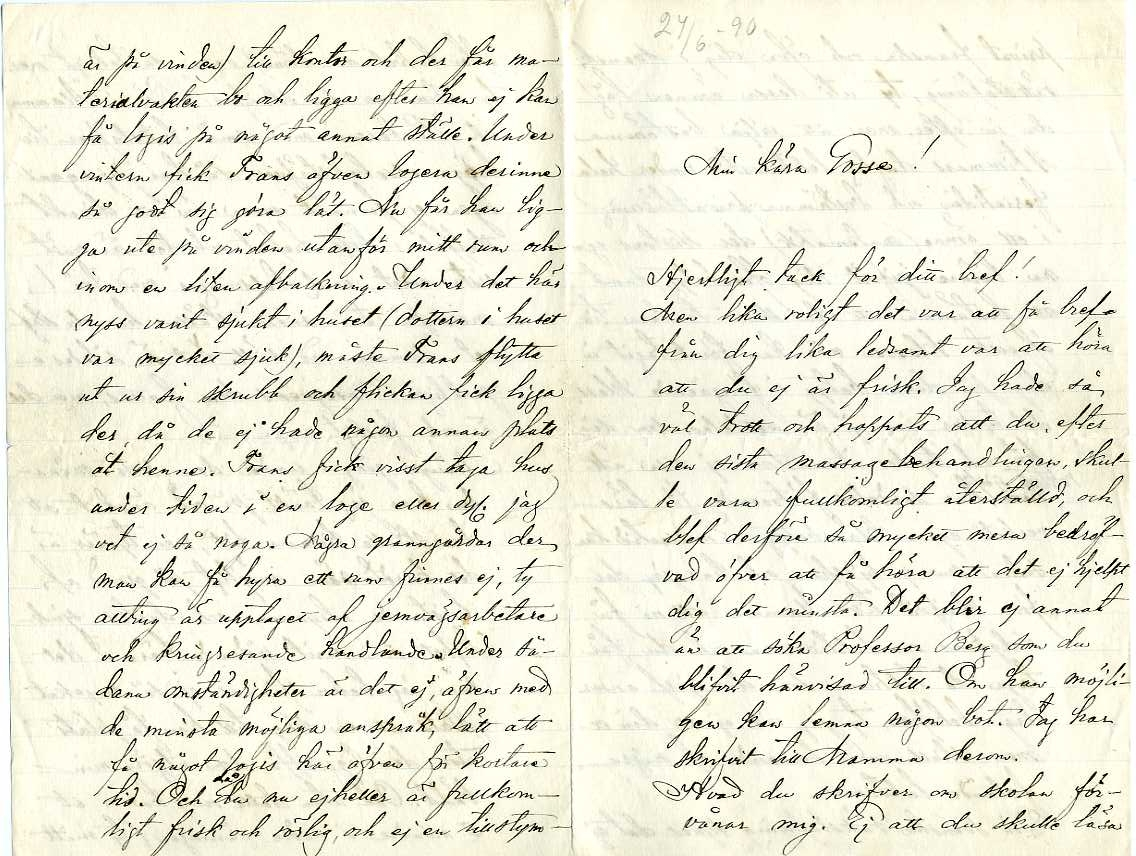 är på vinden) till kontor och der får ma-
terialvakten bo och ligga efter han ej kan
få logis på något annat ställe. Under
vintern fick Frans äfven logera derinne
så godt sig göra lät. Nu får han lig-
ga ute på vinden utanför mitt rum och
inom en liten afbalkning. Under det här
nyss varit sjukt i huset (dottern i huset
var mycket sjuk), måste Frans flytta
ut ur sin skrubb och flickan fick ligga
der, då de ej hade någon annan plats
åt henne. Frans fick visst taga hus
under tiden i en loge eller dyl. jag
vet ej så noga. Några granngårdar der
man kan få hyra ett rum finnes ej, ty
allting är upptaget af jernvägsarbetare
och kringresande handlande. Under så-
dana omständigheter är det ej, äfven med
de minsta möjliga anspråk, lätt att
få något logis här äfven för kortare
tid. Och då du nu ej heller är fullkom-
ligt frisk och rörlig, och ej en tillstym-
24/6 -90
Min kära Gosse!
Hjertligt tack för ditt bref!
Men lika roligt det var att få bref
från dig lika ledsamt var att höra
att du ej är frisk. Jag hade så
väl trott och hoppats att du, efter
den sista massagebehandlingen, skul-
le vara fullkomligt återställd, och
blef derföre så mycket mera bedröf-
vad öfver att få höra att det ej hjelpt
dig det minsta. Det blir ej annat
än att söka Professor Berg som du
blifvit hänvisad till. Om han möjli-
gen kan lemna någon bot. Jag har
skrifvit till Mamma derom.
Hvad du skrifver om skolan för-
vånar mig. Ej att du skulle läsa